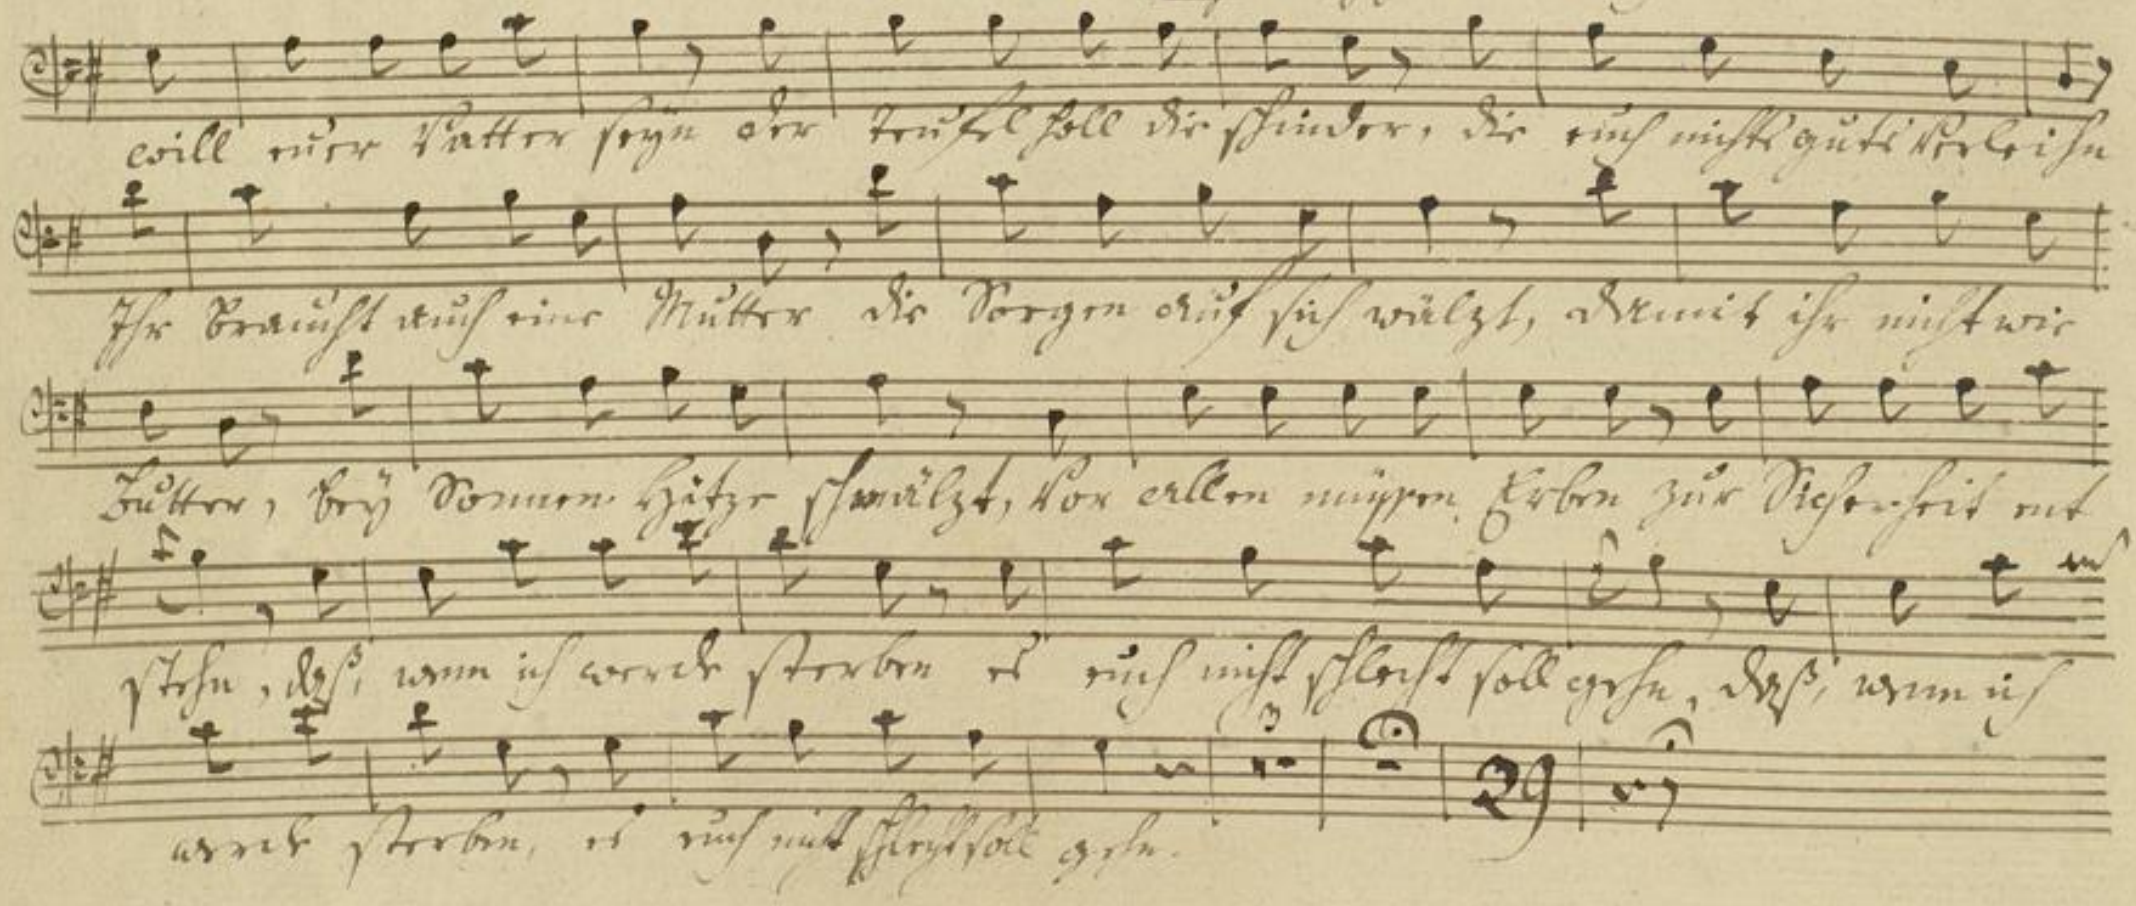 will euer Vatter seyn der Teufel holl die Schinder, die euch nichts guts verleihn
Ihr braucht auch eine Mutter die Sorgen auf sich wälzt, damit ihr nicht wie
Butter, bey Sonnen Hitze schmälzt, vor allen müssen Erben zur Sicherheit ent
stehn, daß, wenn ich werde sterben es euch nicht schlecht soll gehn, daß, wenn ich
3
29
werde sterben, es euch nicht schlecht soll gehn.